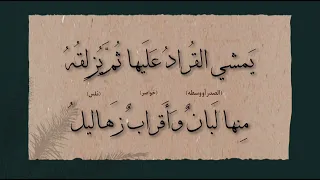 يَمشي القُرادُ عَلَيها ثُمَّ يُزلِقُهُ
(الصدر أو وسطه) (خواصر) (مُلس)
مِنها لَبانٌ وَأَقرابٌ زَهاليلُ